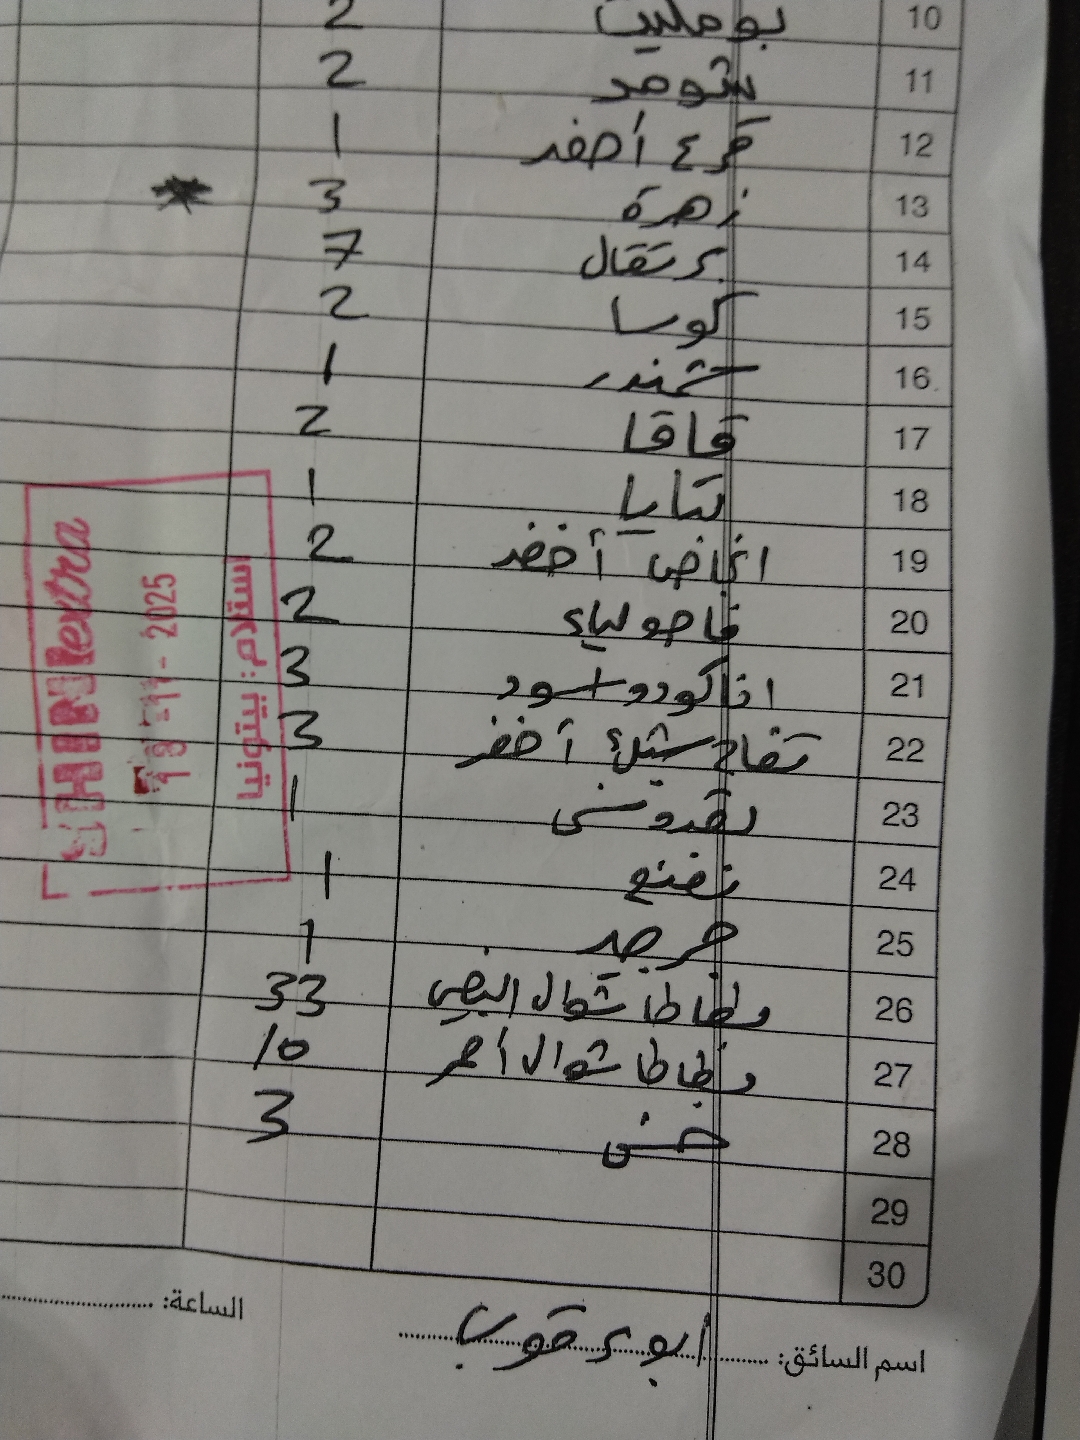 10 بوملي 2
11 شومر 2
12 قرع أخضر 1
13 زهرة 3
14 برتقال 7
15 كوسا 2
16 شمندر 1
17 قاقا 2
18 بتايا 1
19 انجاص أخضر 2
20 فاصولياء 2
21 افاكودو اسود 3
22 تفاح سكري أخضر 3
23 بقدونس 1
24 نعنع 1
25 جرجير 1
26 بطاطا شوال ابيض 33
27 بطاطا شوال أحمر 10
28 خس 3
29
30
extra
18-11-2025
استلام: بيتونيا
الساعة:
اسم السائق: ابو يعقوب